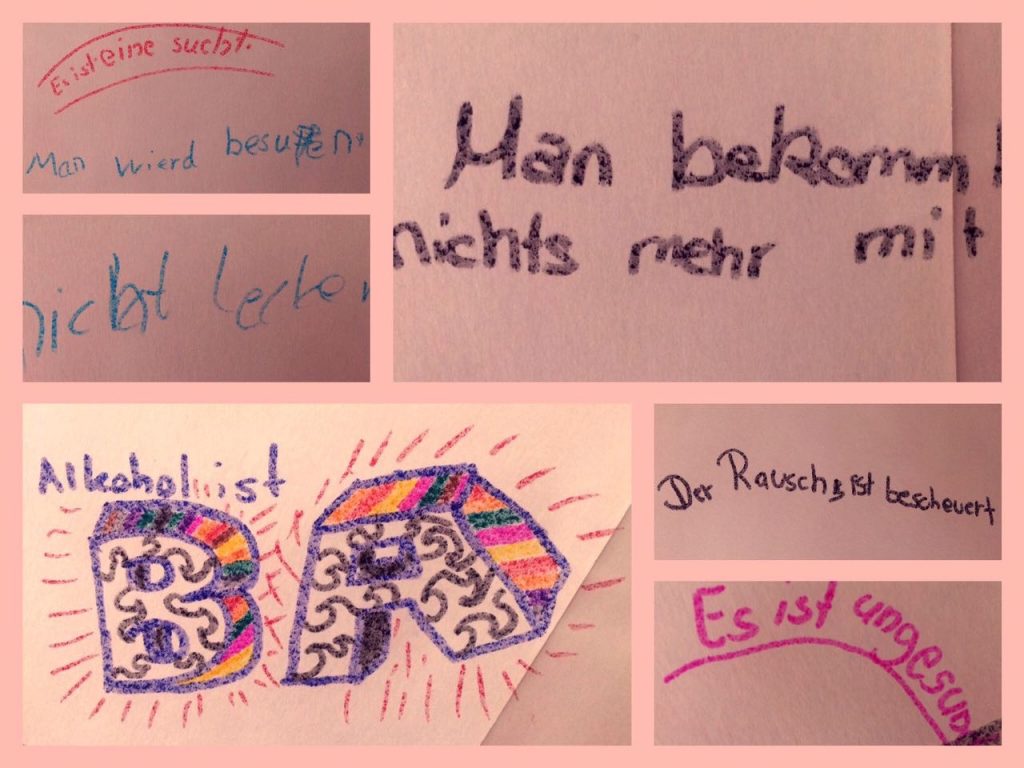 Es ist eine sucht.
Man wierd besuffen.
nicht lecker
Man bekommt
nichts mehr mit
Alkohol ist
BÄ
Der Rausch ist bescheuert
Es ist ungesund